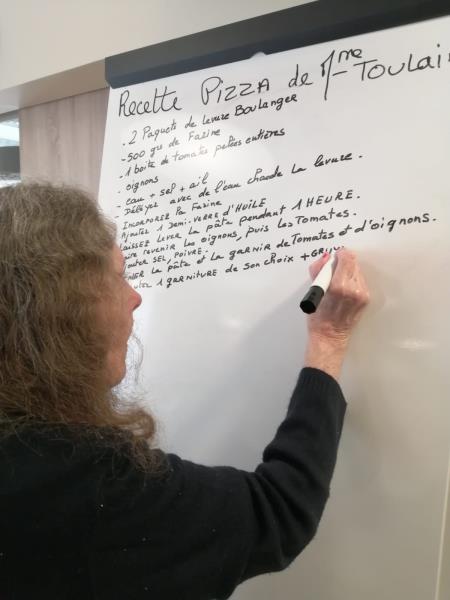 Recette PIZZA de Mme TOULAI
. 2 Paquets de levure Boulanger
- 500 grs de Farine
. 1 boîte de tomates pelées entières
. oignons
- eau + sel + ail
- Délayez avec de l'eau chaude la levure.
INCORPORER la Farine
Ajouter 1 demi-verre d'HUILE
LAISSEZ LEVER la pâte pendant 1 HEURE.
aire revenir les oignons, puis les Tomates.
outer SEL, POIVRE.
la pâte et la garnir de Tomates et d'oignons.
outez 1 garniture de son choix + GRUY